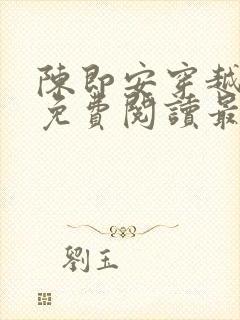 陳即安穿越
免費閱讀最
劉玉